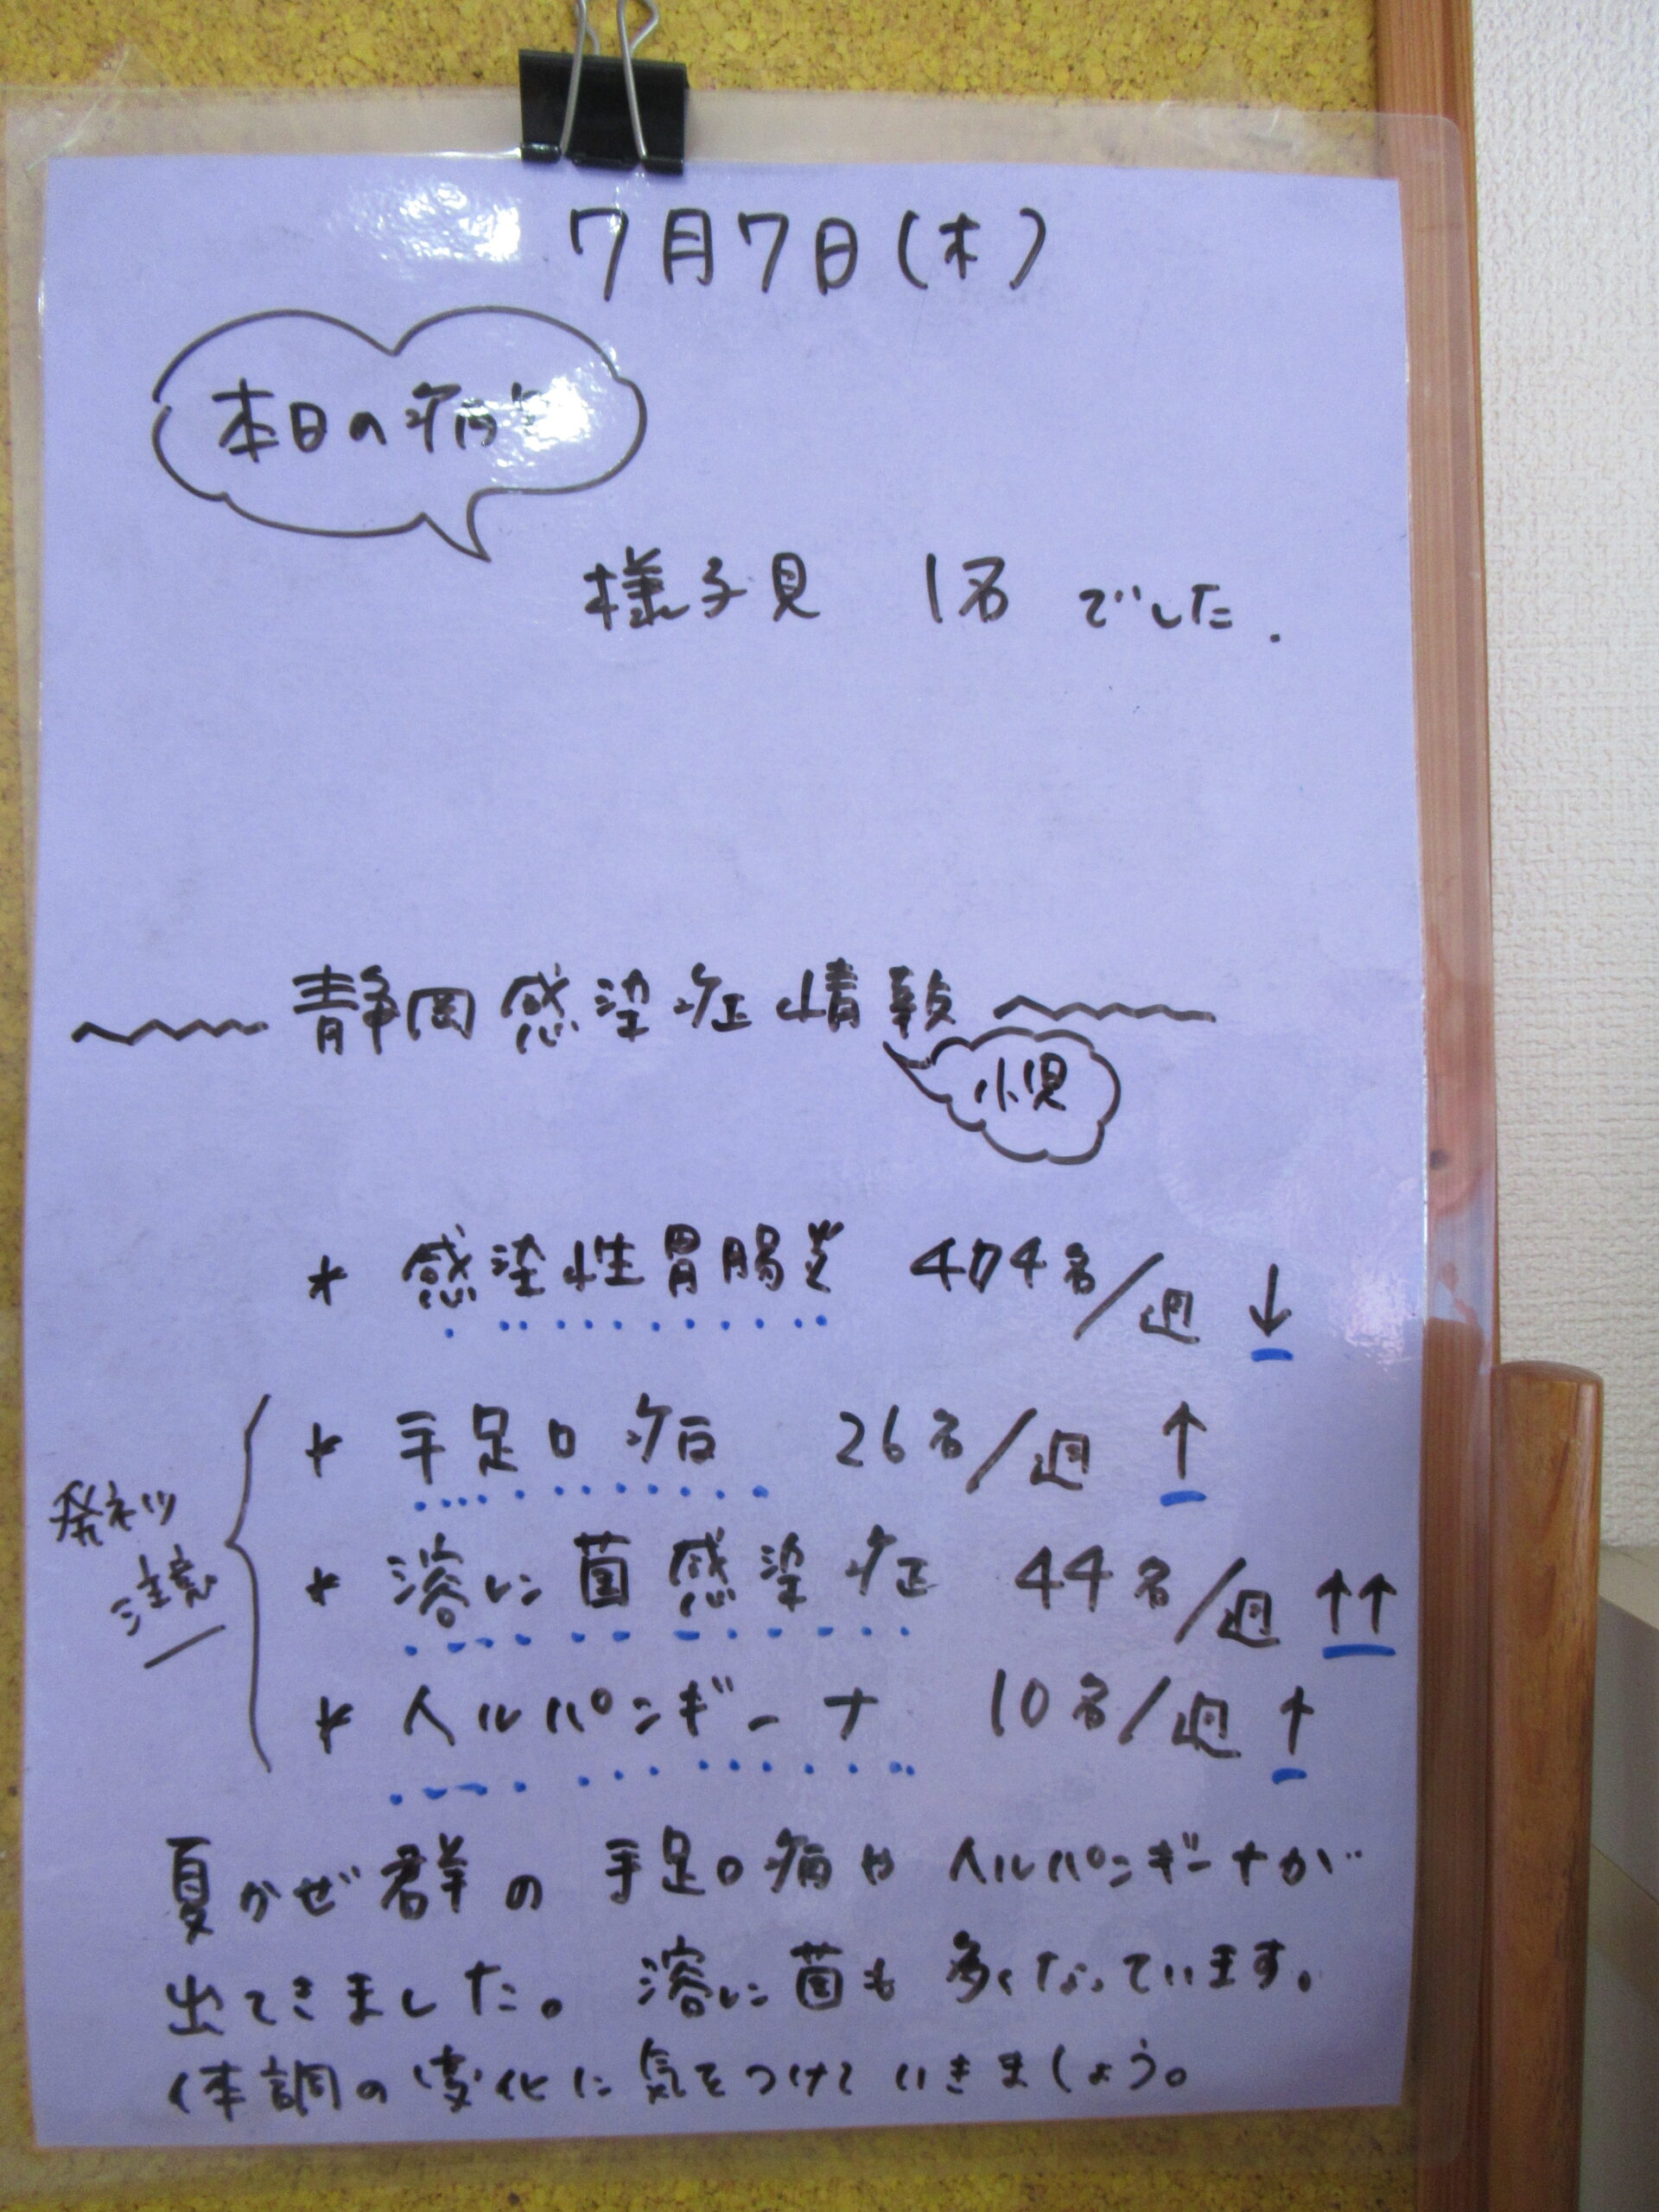 7月7日(木)
本日の病
様子見 1名 でした.
静岡感染症情報
小児
* 感染性胃腸炎 474名/週 ↓
* 手足口病 26名/週 ↑
発ネツ
注意
* 溶レン菌感染症 44名/週 ↑↑
* ヘルパンギーナ 10名/週 ↑
夏かぜ群の 手足口病や ヘルパンギーナが
出てきました。 溶レン菌も 多くなっています。
体調の変化に気をつけていきましょう。